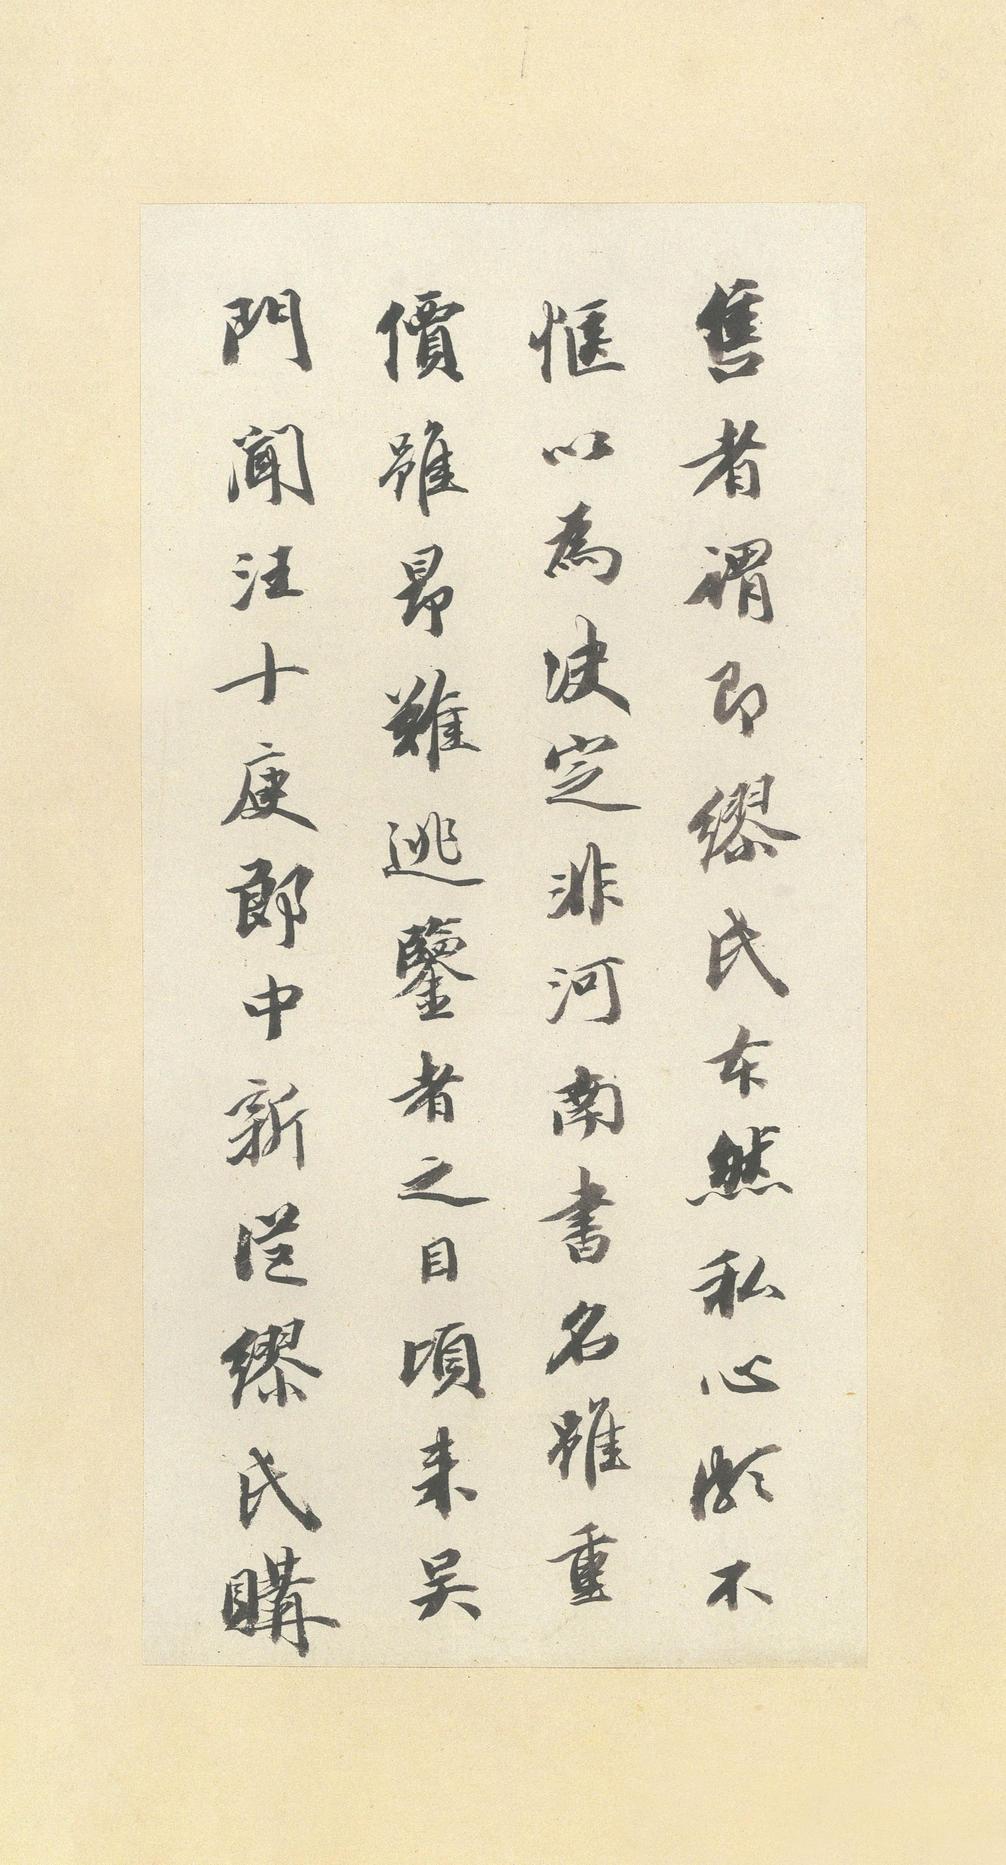 售者謂即繆氏本然私心頗不
愜以為決定非河南書名雖重
價雖昂難逃鑒者之目頃来吴
門聞汪十庚郎中新從繆氏購